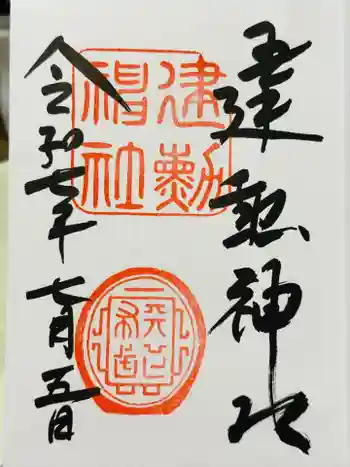 建勲神社
建勲
神社
令和七年
七月五日